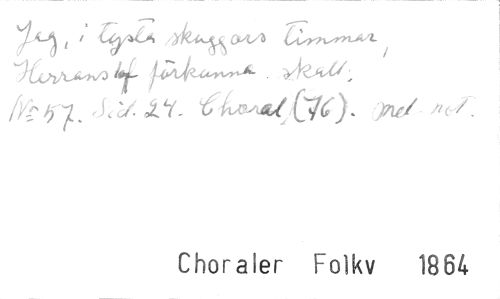 Jag, i tysta skuggors timmar,
Herrans lof förkunna skall;
No 57. Sid. 24. Choral (76). med not.
Choraler Folkv 1864